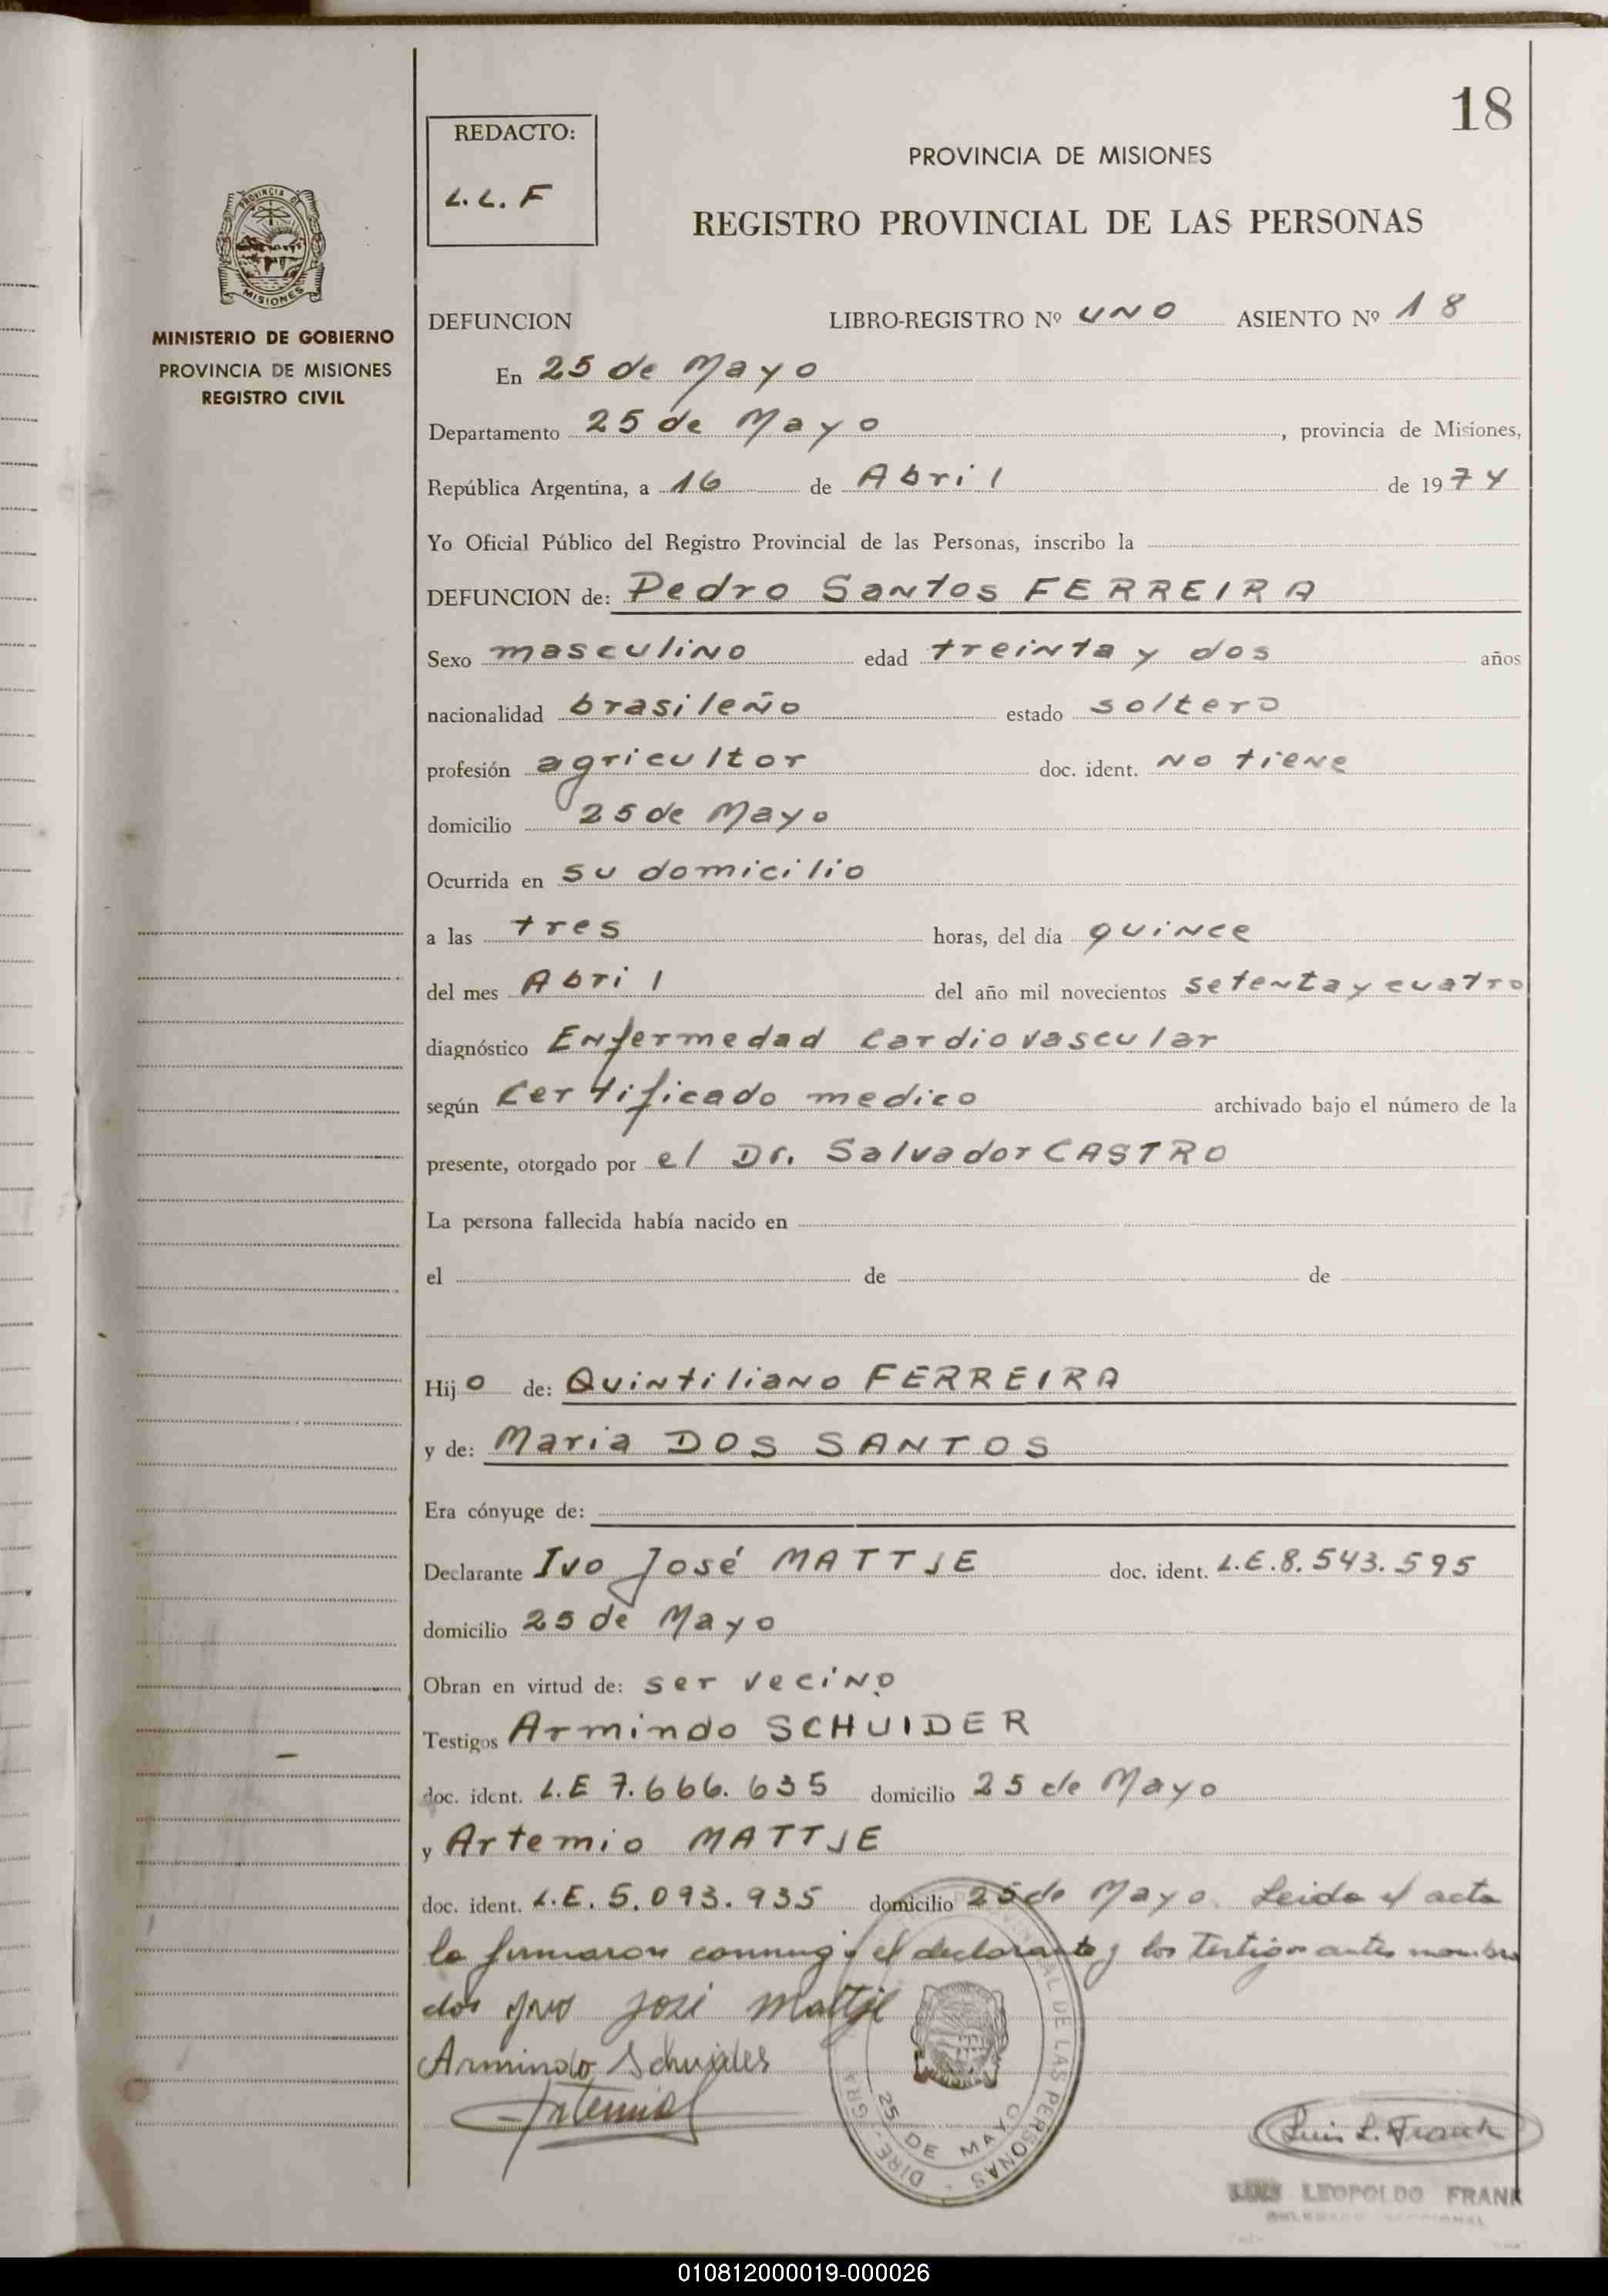 18
REDACTO:
L. L. F
PROVINCIA DE MISIONES
REGISTRO PROVINCIAL DE LAS PERSONAS
PROVINCIA DE
MISIONES
MINISTERIO DE GOBIERNO
PROVINCIA DE MISIONES
REGISTRO CIVIL
DEFUNCION LIBRO-REGISTRO Nº UNO ASIENTO Nº 18
En 25 de Mayo
Departamento 25 de Mayo, provincia de Misiones,
República Argentina, a 16 de Abril de 1974
Yo Oficial Público del Registro Provincial de las Personas, inscribo la
DEFUNCION de: Pedro Santos FERREIRA
Sexo masculino edad treinta y dos años
nacionalidad brasileño estado soltero
profesión agricultor doc. ident. No tiene
domicilio 25 de Mayo
Ocurrida en su domicilio
a las tres horas, del día quince
del mes Abril del año mil novecientos setenta y cuatro
diagnóstico Enfermedad Cardiovascular
según Certificado medico archivado bajo el número de la
presente, otorgado por el Dr. Salvador CASTRO
La persona fallecida había nacido en
el de de
Hijo de: Quintiliano FERREIRA
y de: Maria DOS SANTOS
Era cónyuge de:
Declarante Ivo José MATTJE doc. ident. L.E.8.543.595
domicilio 25 de Mayo
Obran en virtud de: ser vecino
Testigos Armindo SCHUIDER
doc. ident. L.E 7.666.635 domicilio 25 de Mayo
y Artemio MATTJE
doc. ident. L.E. 5.093.935 domicilio 25 de Mayo. Leida el acta
la firmaron conmigo el declarante y los Testigos antes nombra
dos Ivo José Mattje
Armindo
Artemio
25 DE MAYO
DE LAS PERSONAS
Luis L. Frank
LUIS LEOPOLDO FRANK
010812000019-000026